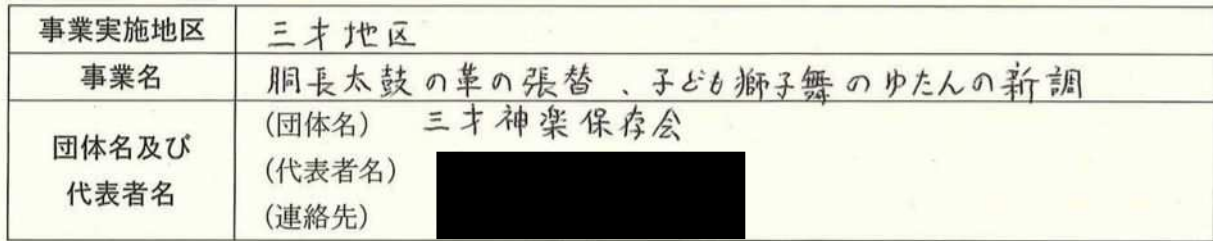 事業実施地区 三才地区
事業名 胴長太鼓の革の張替、子ども獅子舞のゆたんの新調
団体名及び代表者名 (団体名) 三才神楽保存会
(代表者名)
(連絡先)